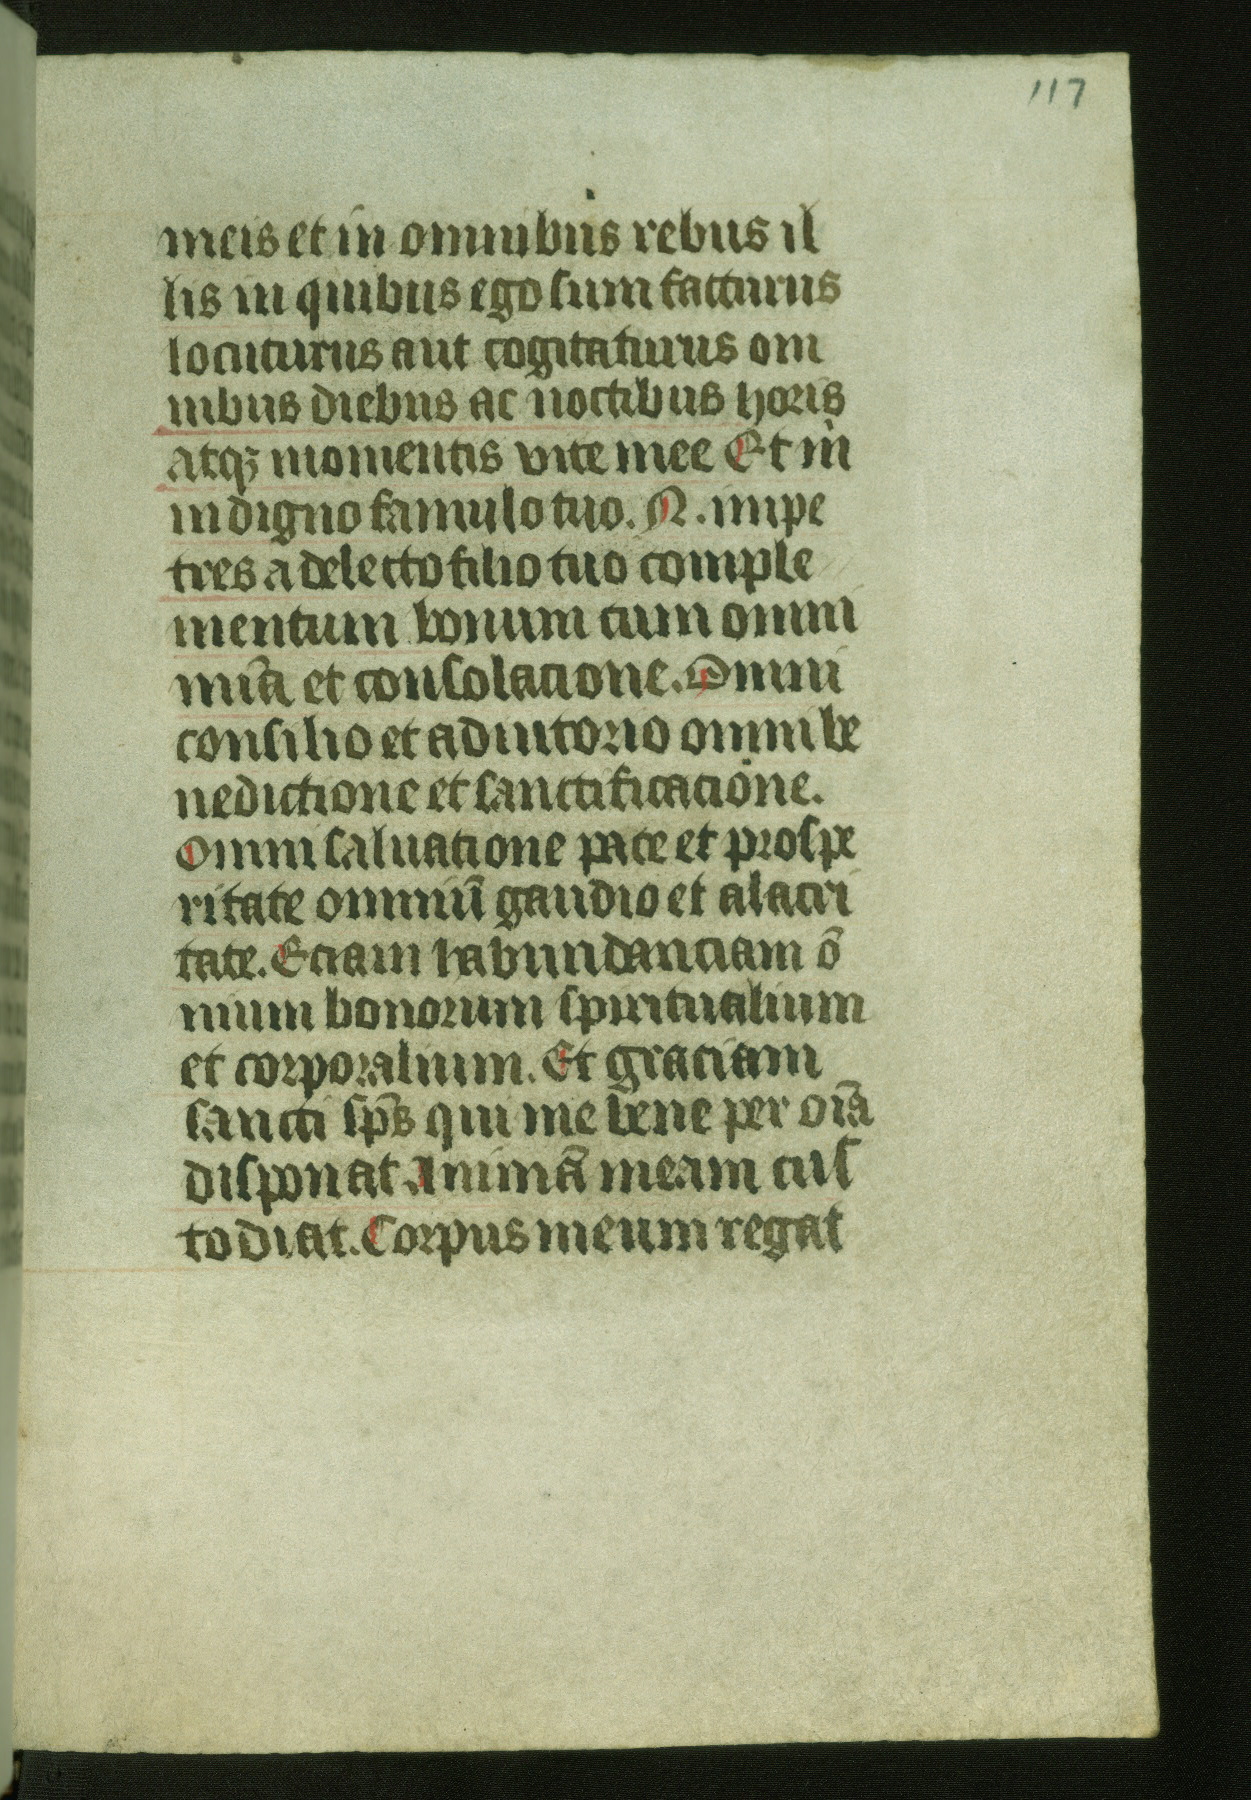 117
meis et in omnibus rebus il
lis in quibus ego sum facturus
locuturus aut cogitaturus om
nibus diebus ac noctibus horis
atqꝫ momentis vite mee Et in
indigno famulo tuo. N. impe
tres a delecto filio tuo comple
mentum bonum cum omni
mīa et consolacione. Omni
consilio et adiutorio omni be
nedictione et sanctificacione.
Omni saluatione pace et prospe
ritate omniū gaudio et alacri
tate. Eciam habundanciam ō
nium bonorum spiritualium
et corporalium. Et graciam
sancti sp̄s qui me bene per oīa
disponat. Animā meam cus
todiat. Corpus meum regat